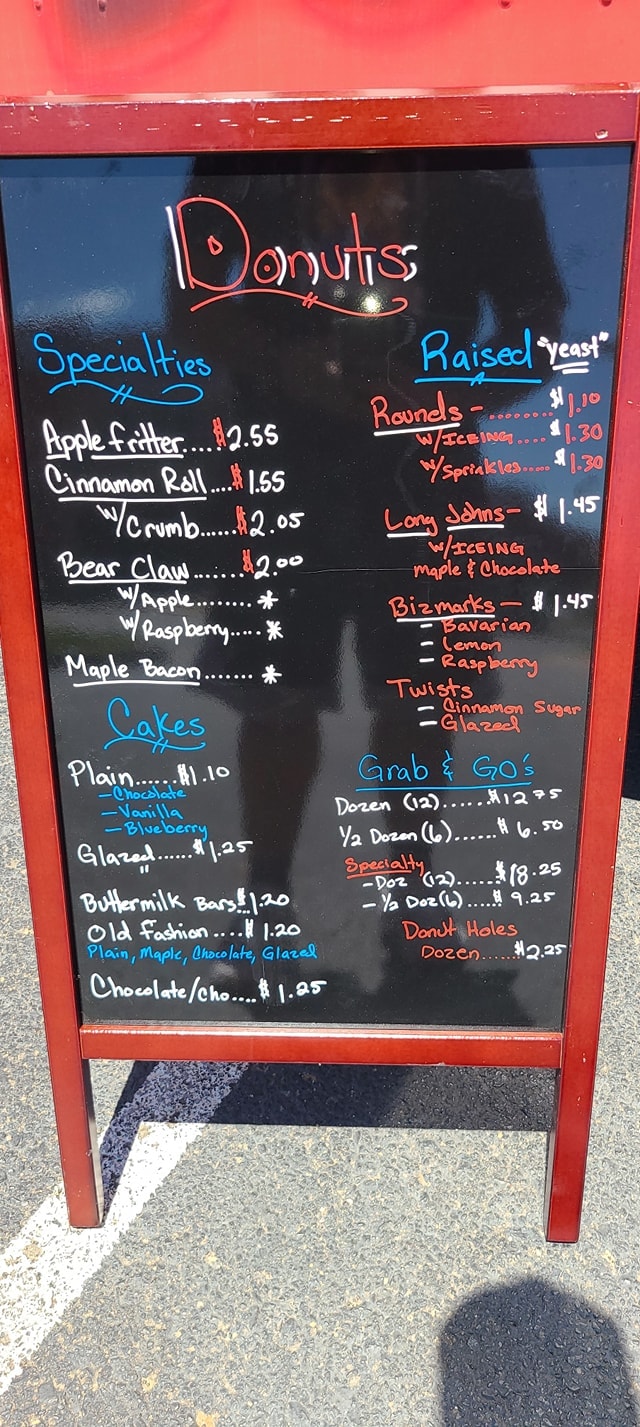 Donuts
Specialties
Apple Fritter.....$2.55
Cinnamon Roll....$1.55
w/Crumb......$2.05
Bear Claw.......$2.00
w/Apple........*
w/Raspberry.....*
Maple Bacon.......*
Cakes
Plain......$1.10
-Chocolate
-Vanilla
-Blueberry
Glazed......$1.25
Buttermilk Bars..$1.20
Old Fashion....$1.20
Plain, Maple, Chocolate, Glazed
Chocolate/cho....$1.25
Raised "yeast"
Rounds-........$1.10
w/ICEING....$1.30
w/Sprinkles.....$1.30
Long Johns- $1.45
w/ICEING
maple & Chocolate
Bizmarks- $1.45
- Bavarian
- Lemon
- Raspberry
Twists
- Cinnamon Sugar
- Glazed
Grab & GO's
Dozen (12)......$12 75
1/2 Dozen(6)......$6.50
Specialty
-Doz (12)......$18.25
- 1/2 Doz(6).....$9.25
Donut Holes
Dozen......$2.25